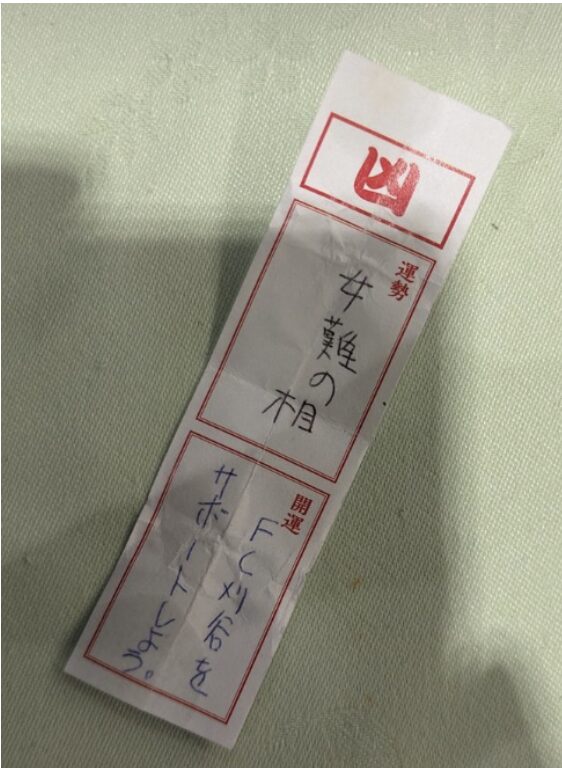 凶
運勢
女難の
相
開運
FC刈谷を
サポートしよう。